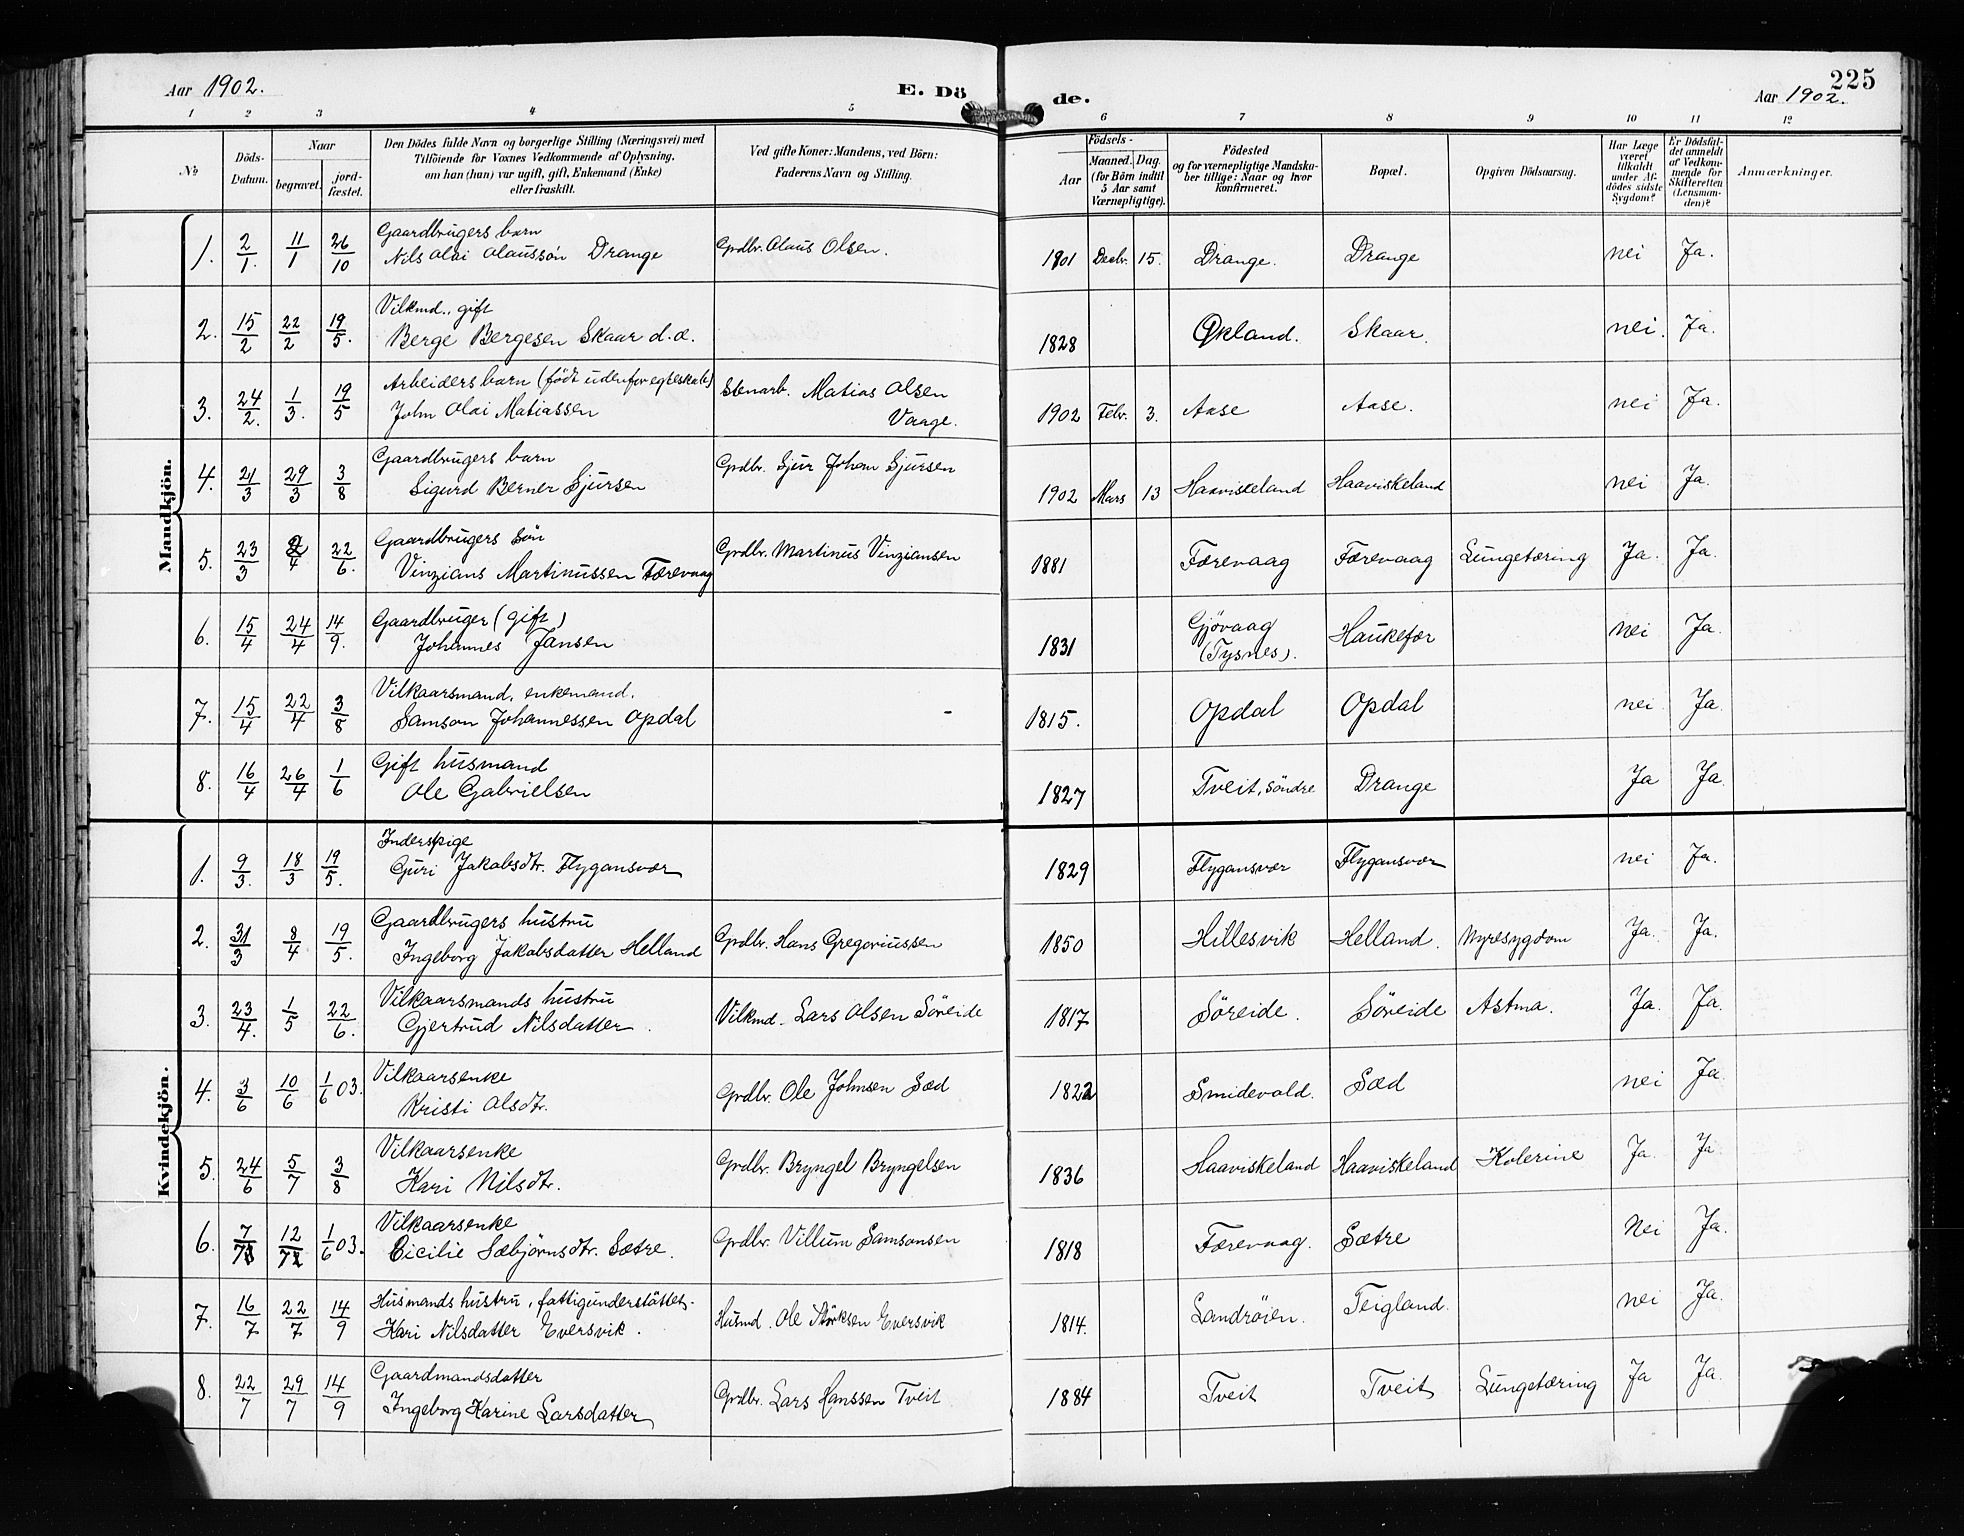 Aar 1902. E. Dö de. 225
Aar 1902.
1 2 3 4 5 6 7 8 9 10 11 12
No Döds-Datum. Naar begravet. jord-fæstet. Den Dödes fulde Navn og borgerlige Stilling (Næringsvei) med Tilföiende för Voxnes Vedkommende af Oplysning, om han (hun) var ugift, gift, Enkemand (Enke) eller fraskilt. Ved gifte Koner: Mandens, ved Börn: Faderens Navn og Stilling. Födsels- Aar Maaned. Dag. (for Börn indtil 5 Aar samt Værnepligtige). Födested og for værnepligtige Mandskaber tillige: Naar og hvor konfirmeret. Bopæl. Opgiven Dödsaarsag. Har Læge været tilkaldt under Afdödes sidste Sygdom? Er Dödsfaldet anmeldt af Vedkommende for Skifteretten (Lensmanden)? Anmærkninger.
Mandkjön.
1. 2/1. 11/1 26/10 Gaardbrugers barn
Nils Olai Olaussön Drange Grdbr. Olaus Olsen. 1901 Decbr. 15. Drange. Drange nei Ja.
2. 15/2 22/2 19/5. Vilkmd., gift
Berge Bergesen Skaar d.æ. 1828 Økland. Skaar. nei. Ja.
3. 24/2. 1/3. 19/5 Arbeiders barn (födt udenfor egteskab)
John Olai Matiassen Stenarb. Matias Olsen
Vaage. 1902 Febr. 3. Aase Aase. nei Ja.
4. 21/3 29/3 3/8 Gaardbrugers barn
Sigurd Berner Sjursen Grdbr. Sjur Johan Sjursen 1902 Mars 13 Haaviskeland Haaviskeland nei Ja.
5. 23/3 2/4 22/6. Gaardbrugers sön
Vinzians Martinussen Færevaag Grdbr. Martinus Vinziansen 1881 Færevaag Færevaag Lungetæring Ja. Ja.
6. 15/4 24/4 14/9. Gaardbruger (gift)
Johannes Jansen 1831 Gjövaag
(Tysnes). Haukefær nei Ja.
7. 15/4 22/4 3/8 Vilkaarsmand, enkemand.
Samson Johannessen Opdal - 1815. Opdal Opdal nei Ja.
8. 16/4 26/4 1/6 Gift husmand
Ole Gabrielsen 1827 Tveit, söndre Drange Ja Ja.
Kvindekjön.
1. 9/3. 18/3 19/5. Inderspige
Guri Jakobsdtr. Flygansvær 1829 Flygansvær Flygansvær nei Ja.
2. 31/3 8/4 19/5. Gaardbrugers hustru
Ingeborg Jakobsdatter Helland Grdbr. Hans Gregoriussen 1850 Hillesvik Helland. Nyresygdom Ja. Ja.
3. 23/4. 1/5 22/6. Vilkaarsmands hustru
Gjertrud Nilsdatter. Vilkmd. Lars Olsen Söreide 1817 Söreide. Söreide Astma. Ja. Ja.
4. 3/6 10/6 1/6 03. Vilkaarsenke
Kristi Olsdtr. Grdbr. Ole Johnsen Sæd 1822 Smidevold. Sæd nei Ja.
5. 24/6 5/7 3/8 Vilkaarsenke
Kari Nilsdtr. Grdbr. Bryngel Bryngelsen 1836 Haaviskeland Haaviskeland Kolerine Ja. Ja
6. 7/7 12/7 1/6 03. Vilkaarsenke
Cicilie Sæbjörnsdtr. Sætre. Grdbr. Villum Samsonsen 1818 Færevaag. Sætre Nei Ja.
7. 16/7 22/7 14/9 Husmands hustru, fattigunderstöttet.
Kari Nilsdatter Eversvik. Husmd. Ole Störksen Eversvik 1814. Sandröien. Teigland. nei Ja.
8. 22/7 29/7 14/9 Gaardmandsdatter
Ingeborg Karine Larsdatter Grdbr. Lars Hanssen Tveit 1884 Tveit Tveit Lungetæring Ja Ja.